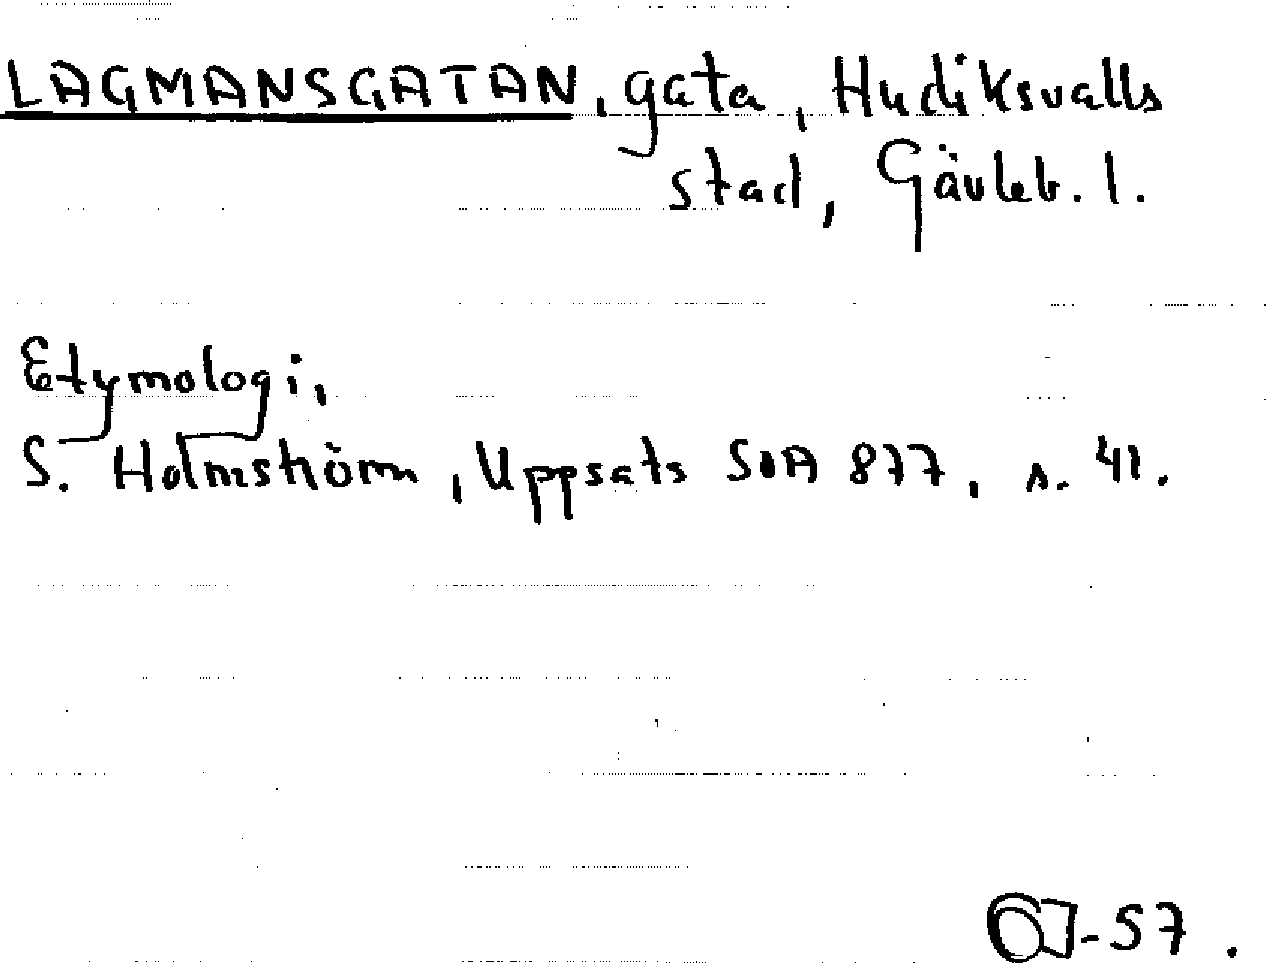 LAGMANSGATAN, gata, Hudiksvalls
stad, Gävleb. l.
Etymologi,
S. Holmström, Uppsats SOA 877, s. 41.
-57.